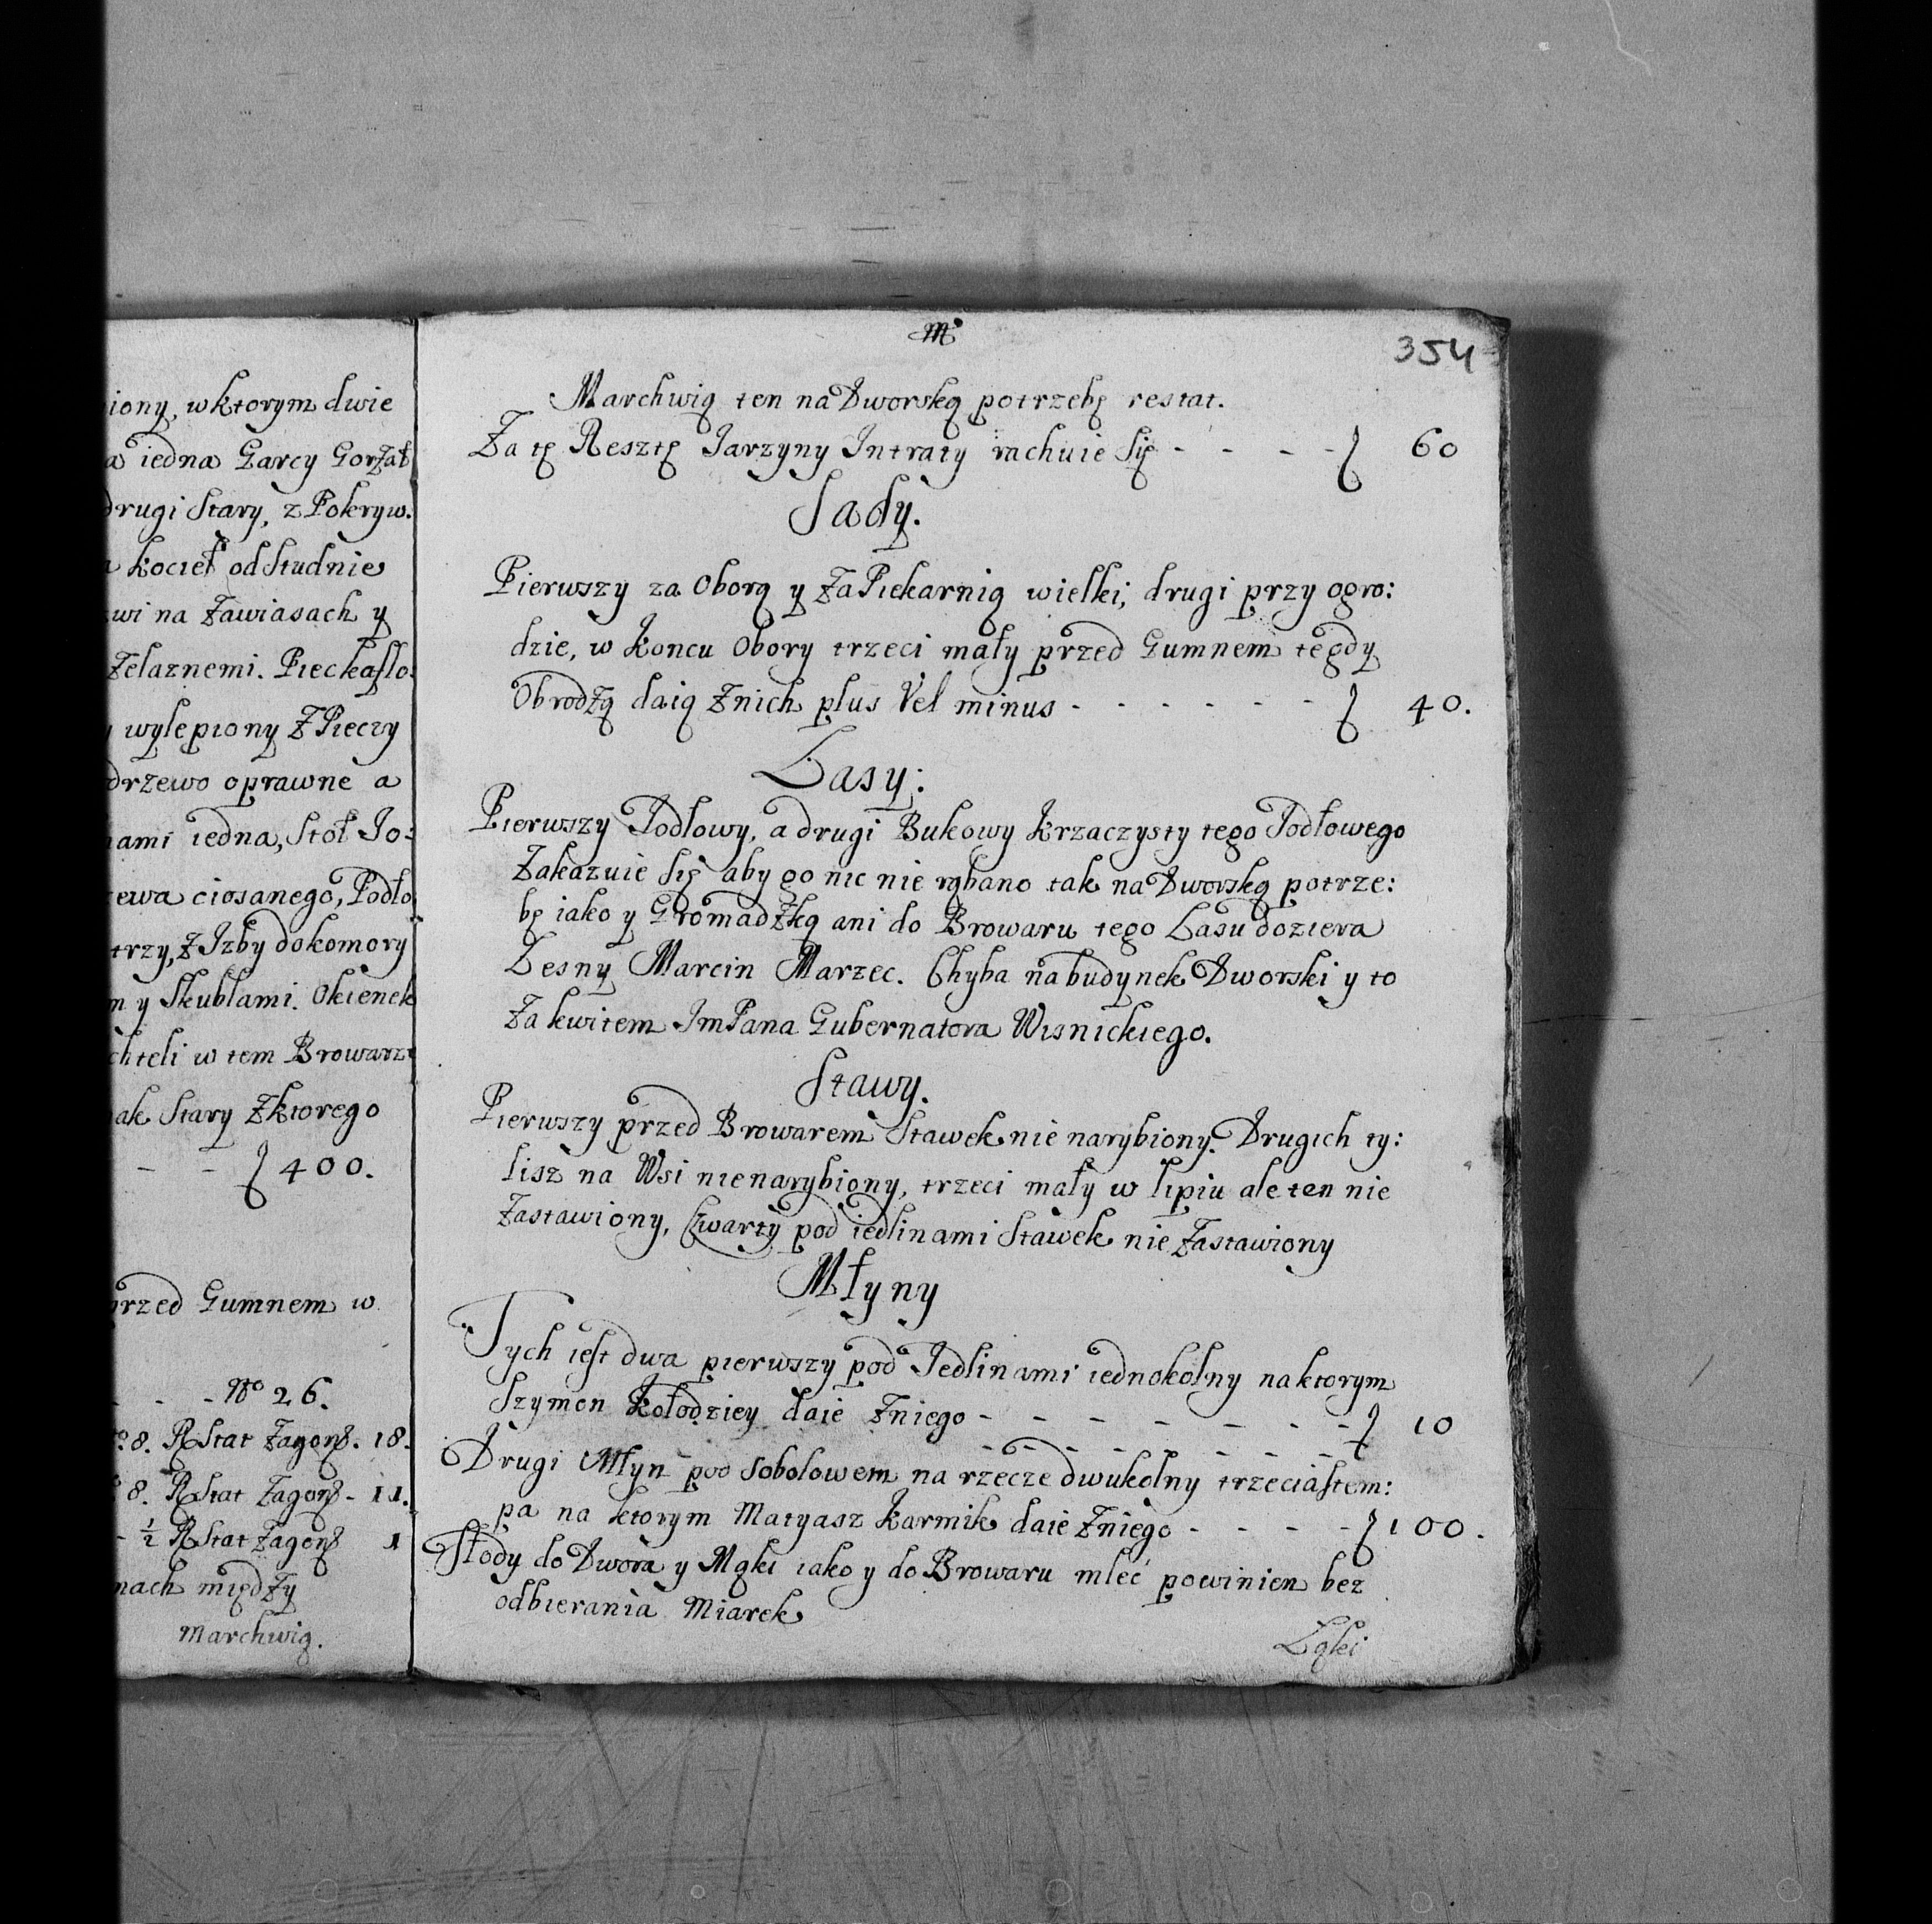 iony, wktorym dwie
a iedna Garcy Gorzał
drugi Stary, z Pokryw.
kocieł od Studnie
wi na Zawiasach y
Zelaznemi. Piec kaflo
wylepiony Z Pieczy
drzewo oprawne a
ami iedna, Stół Jo:
ewa ciosanego, Podło
trzy, z Izby do komory
m y Skublami. Okienek
chteli w tem Browarz
ak Stary Zktorego
- - 400.
przed Gumnem w
- - No 26.
8. RStat Zagonz. 18.
8. RStat Zagonz - 11.
- ½ RStat Zagonz 1
nach między
Marchwią.
354
Marchwią ten na Dworską potrzebę restat.
Za tę Resztę Jarzyny Intraty rachuie Się - - - - 60
Sady.
Pierwszy za Oborą y Za Piekarnią wielki, drugi przy ogro:
dzie, w Koncu Obory trzeci mały przed Gumnem tegdy
Obrodzą daią Znich plus Vel minus - - - - - - 40.
Lasy:
Pierwszy Jodłowy, a drugi Bukowy Krzaczysty tego Jodłowego
Zakazuie Się aby go nic nie rąbano tak na Dworską potrze:
bę iako y Gromadzką ani do Browaru tego Lasu doziera
Lesny Marcin Marzec. Chyba na budynek Dworski y to
Za kwitem Im Pana Gubernatora Wisnickiego.
Stawy.
Pierwszy przed Browarem Stawek nie narybiony. Drugich ty:
lisz na Wsi nienarybiony, trzeci mały w lipiu ale ten nie
Zastawiony, Czwarty pod iedlinami Stawek nie Zastawiony
Młyny
Tych iest dwa pierwszy pod Jedlinami iednokolny naktorym
Szymon Kołodziey daie Zniego - - - - - - - - 10
Drugi Młyn pod Sobolowem na rzecze dwukolny trzecia stem:
pa na ktorym Matyasz Karmik daie Zniego - - - - 100.
Słody do Dwora y Mąki iako y do Browaru mleć powinien bez
odbierania Miarek
Łąki